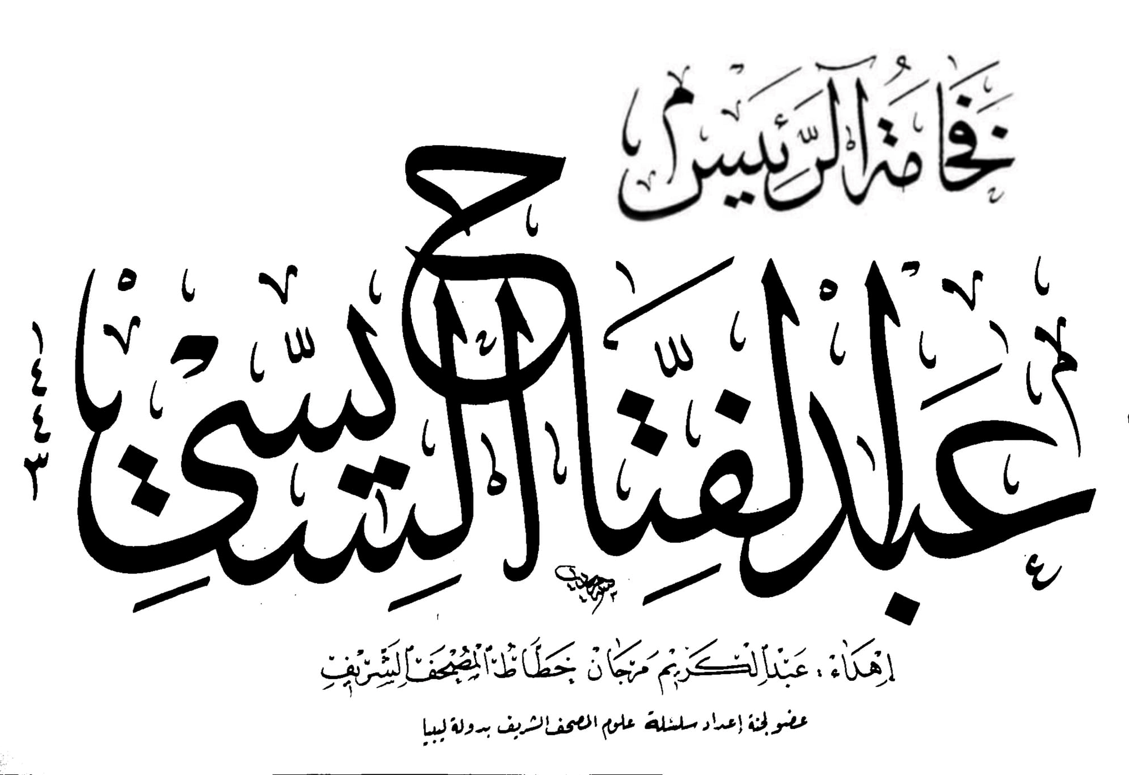 فَخَامَةُ الرَّئِيس
عَبدالفَتَّاح السِّيسِيّ
إهداء: عبدالكريم مرجان خطاط المصحف الشريف
عضو لجنة إعداد سلسلة علوم المصحف الشريف بدولة ليبيا